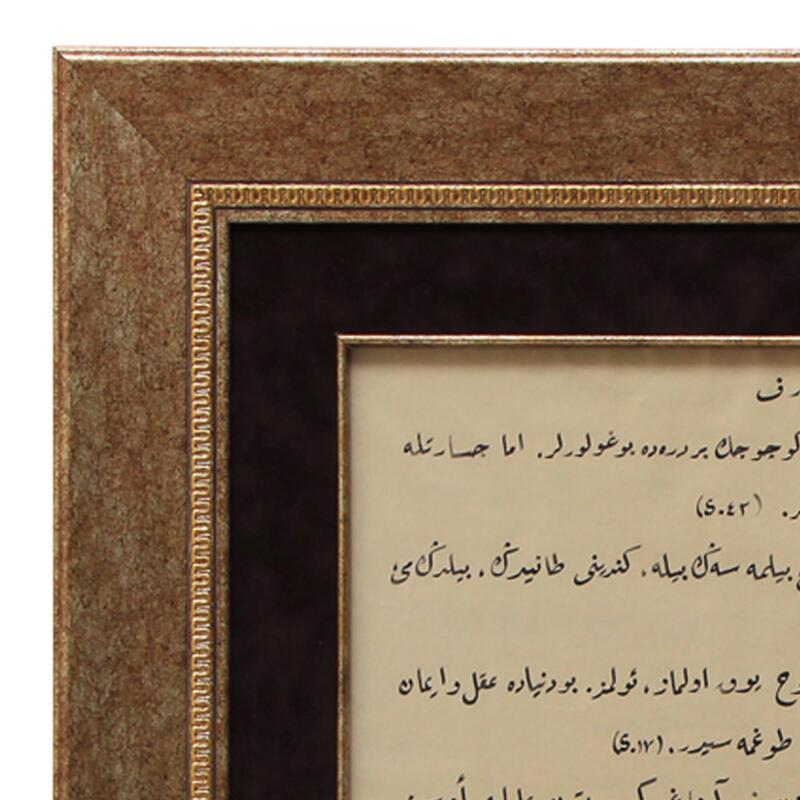 ف
كوجوجك بر دره‌ده بوغولورلر. اما جسارتله
ر. (S.٤٢)
بيلمه سه‌ڭ بيله، كندينى طانيدڭ، بيلدڭ‌ئ
يوق اولماز، ئولمز. بو دنياده عقل و ايمان
طوغمه سيدر. (S.١٧)